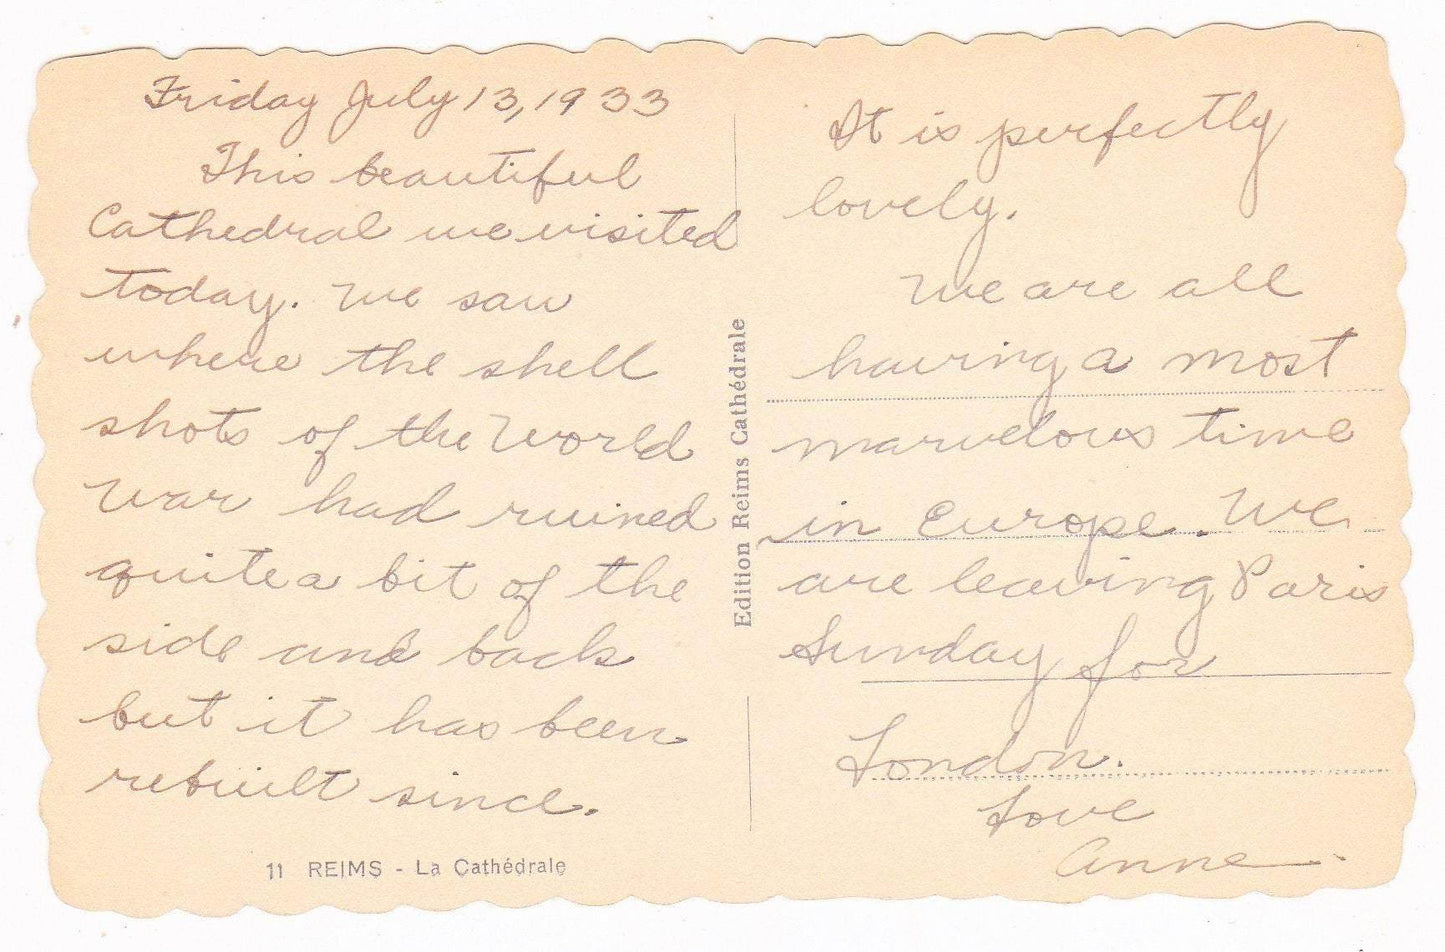 Friday July 13, 1933
This beautiful
Cathedral we visited
today. We saw
where the shell
shots of the World
War had ruined
quite a bit of the
side and back
but it has been
rebuilt since.
11 REIMS - La Cathédrale
Edition Reims Cathédrale
It is perfectly
lovely.
We are all
having a most
marvelous time
in Europe. We
are leaving Paris
Sunday for
London.
Love
Anne